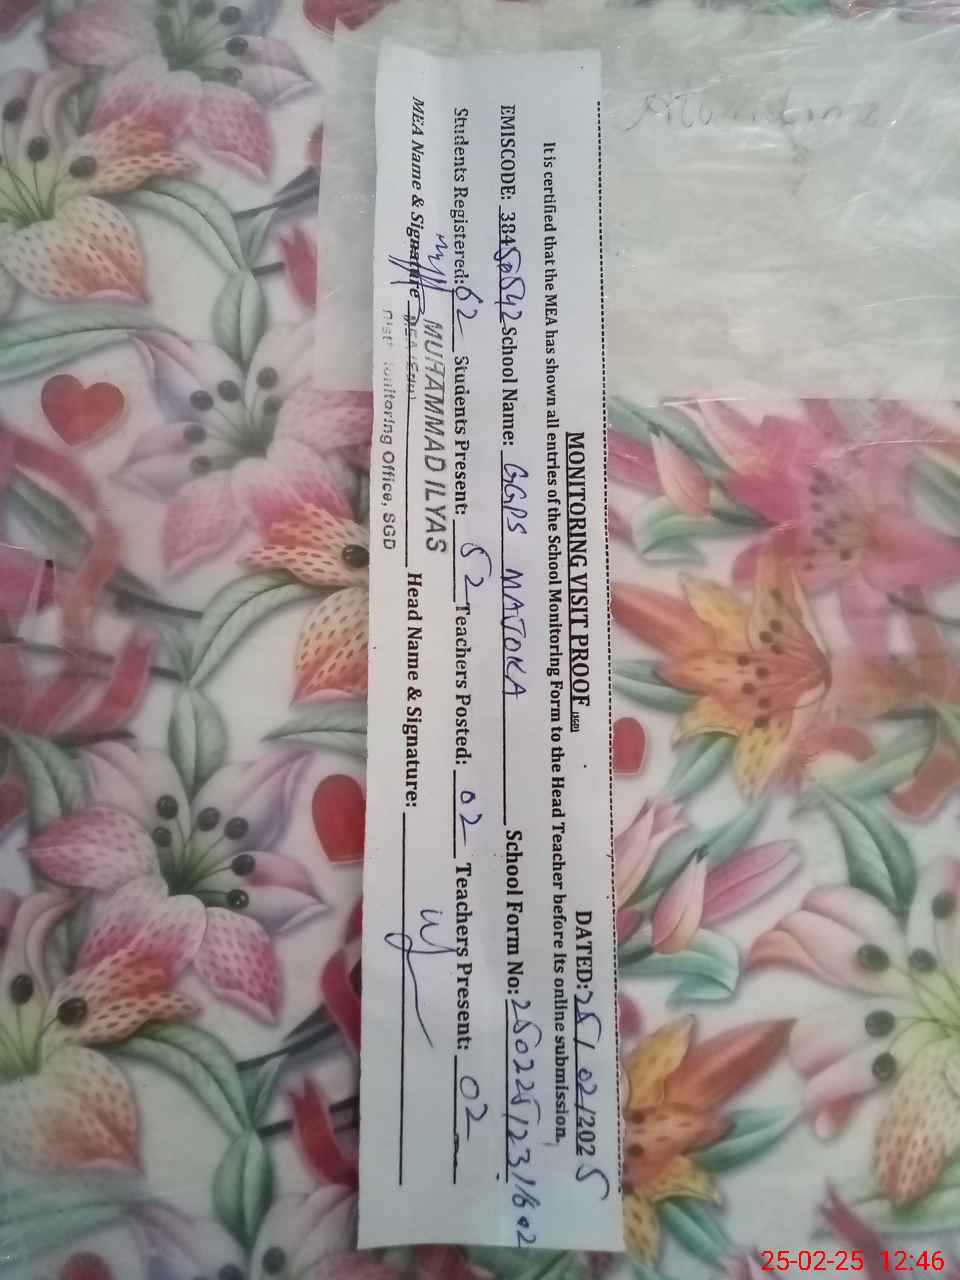 MONITORING VISIT PROOF DATED: 25/02/2025
It is certified that the MEA has shown all entries of the School Monitoring Form to the Head Teacher before its online submission.
EMISCODE: 38450542 School Name: GGPS MATOKA School Form No: 250225/231602
Students Registered: 62 Students Present: 52 Teachers Posted: 02 Teachers Present: 02
MUHAMMAD ILYAS
MEA Name & Signature Head Name & Signature:
Monitoring Office, SGD
25-02-25 12:46